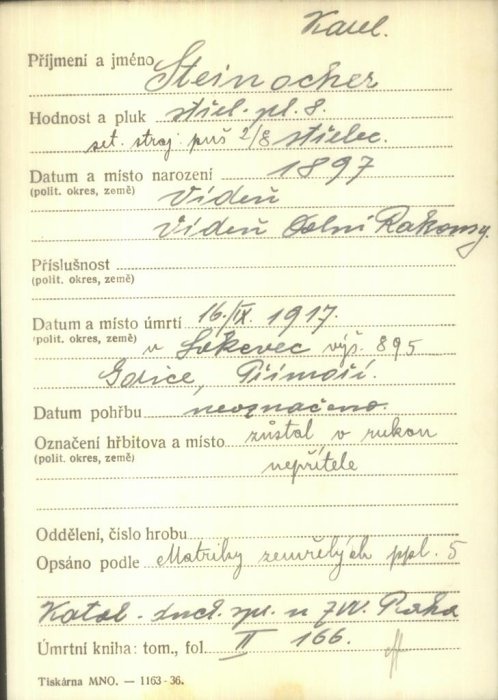 Karel.
Příjmení a jméno Steinocher
Hodnost a pluk střel. pl. 8.
set. stroj. puš 2/8 střelec.
Datum a místo narození 1897
(polit. okres, země) Vídeň
Vídeň Dolní Rakousy.
Příslušnost
(polit. okres, země)
Datum a místo úmrtí 16./IX. 1917.
(polit. okres, země) v Lokevec výš. 895
Gorice, Přímoří.
Datum pohřbu neoznačeno.
Označení hřbitova a místo zůstal v rukou
(polit. okres, země) nepřítele
Oddělení, číslo hrobu
Opsáno podle Matriky zemřelých ppl. 5
Katol. duch. spr. u ZVV. Praha
Úmrtní kniha: tom., fol. II 166.
Tiskárna MNO. — 1163-36.